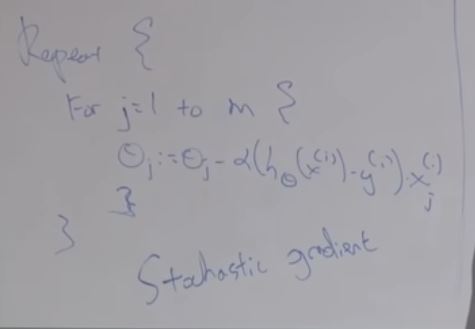 Repeat {
For j=1 to m {
Θj := Θj - α(hΘ(x^(i)) - y^(i)) · xj^(i)
}
}
Stochastic gradient